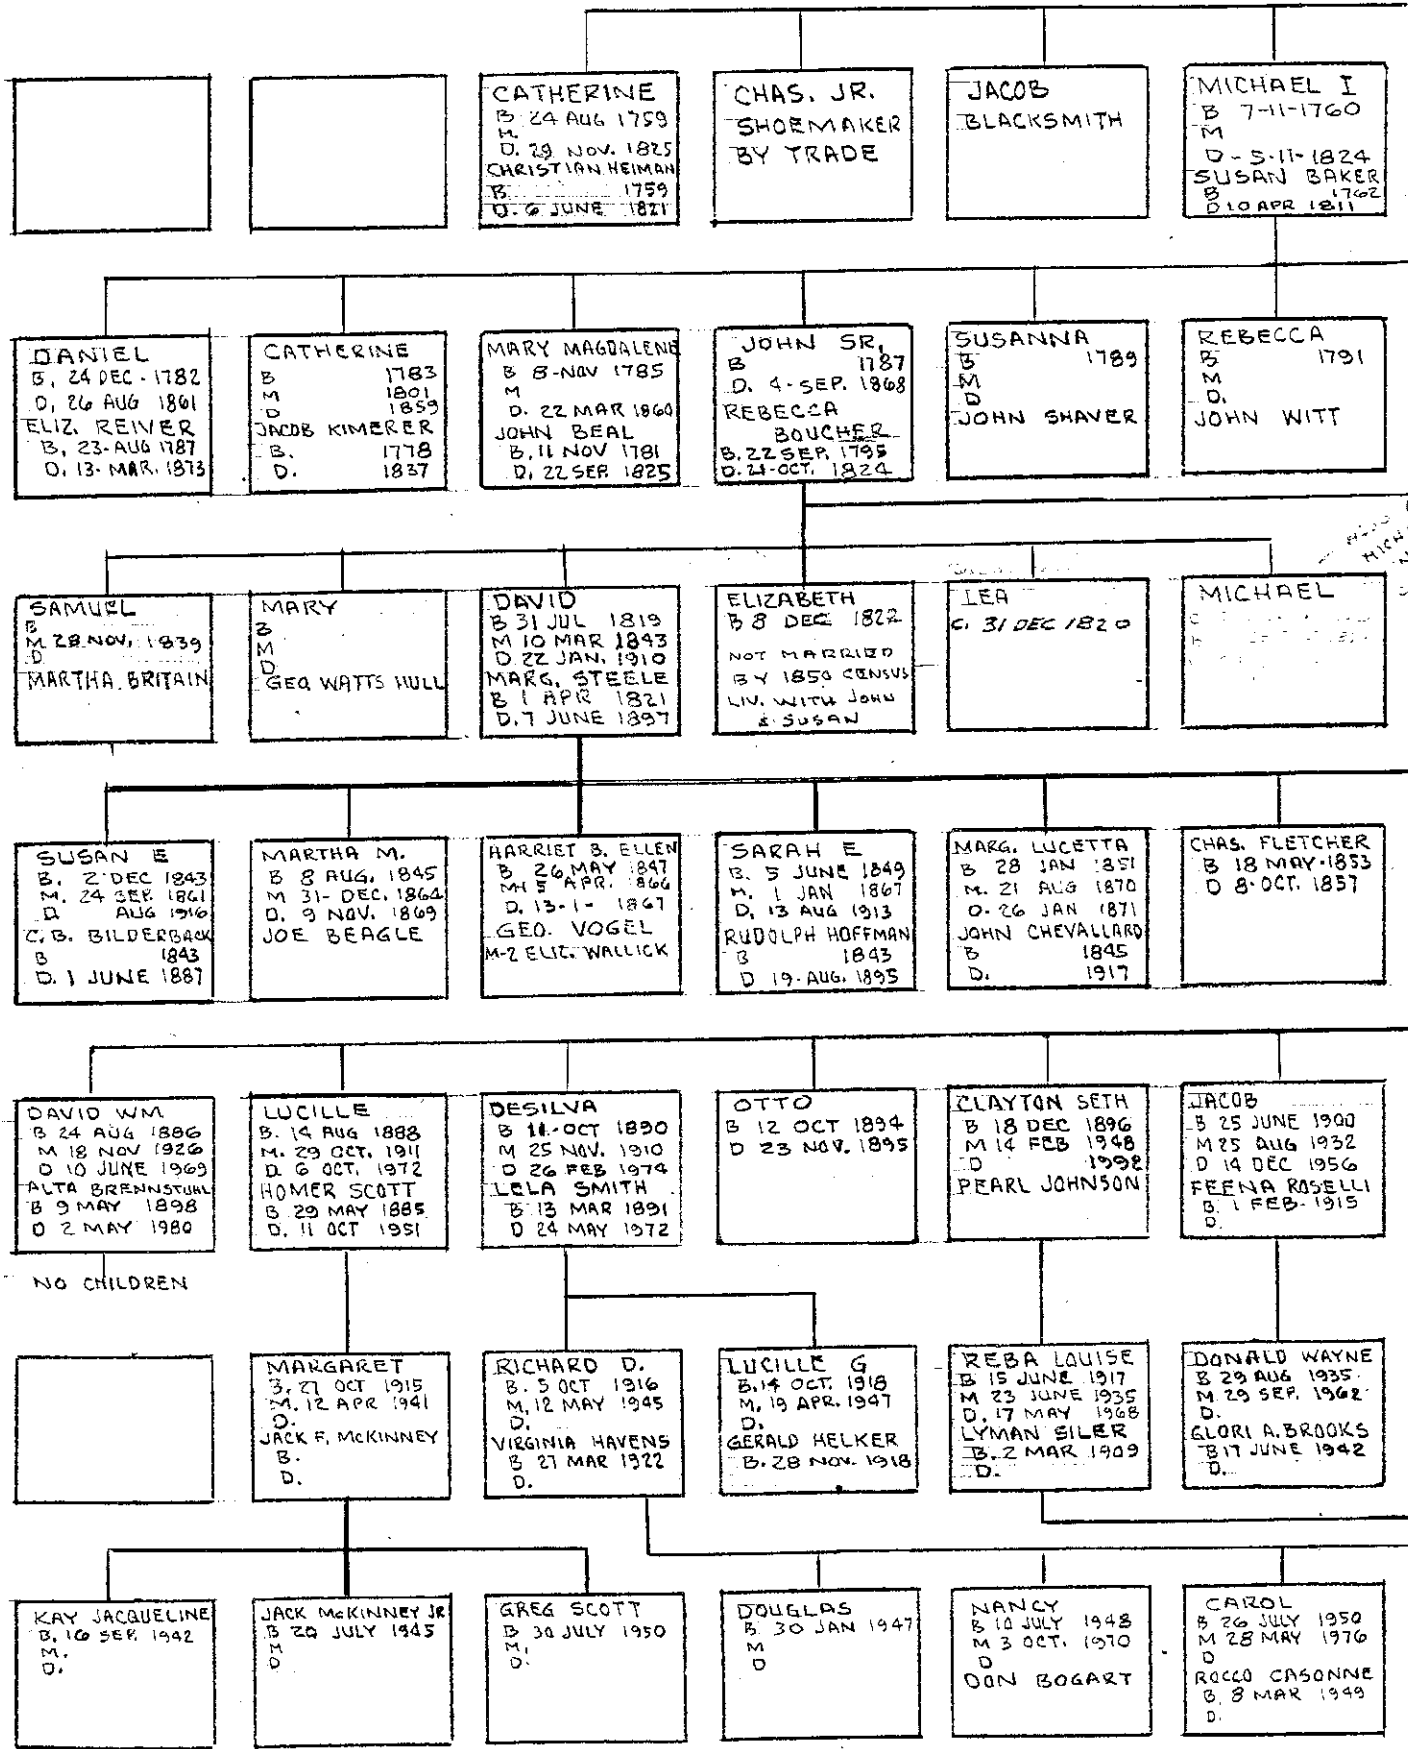 CATHERINE
B. 24 AUG 1759
M.
D. 29 NOV. 1825
CHRISTIAN HEIMAN
B 1759
D. 6 JUNE 1821
CHAS. JR.
SHOEMAKER
BY TRADE
JACOB
BLACKSMITH
MICHAEL I
B 7-11-1760
M
D - 5-11-1824
SUSAN BAKER
B 1762
D 10 APR 1811
DANIEL
B, 24 DEC - 1782
D, 26 AUG 1861
ELIZ. REIVER
B, 23-AUG 1787
D, 13-MAR. 1873
CATHERINE
B 1783
M 1801
D 1859
JACOB KIMERER
B. 1778
D. 1837
MARY MAGDALENE
B 8-NOV 1785
M
D. 22 MAR 1860
JOHN BEAL
B, 11 NOV 1781
D, 22 SEP. 1825
JOHN SR,
B 1787
D. 4-SEP. 1868
REBECCA
BOUCHER
B. 22 SEP. 1795
D. 21-OCT. 1824
SUSANNA
B 1789
M
D
JOHN SHAVER
REBECCA
B 1791
M
D.
JOHN WITT
SAMUEL
B
M 28 NOV, 1839
D
MARTHA BRITAIN
MARY
B
M
D
GEO. WATTS HULL
DAVID
B 31 JUL 1819
M 10 MAR 1843
D 22 JAN. 1910
MARG. STEELE
B 1 APR 1821
D. 7 JUNE 1897
ELIZABETH
B 8 DEC 1822
NOT MARRIED
BY 1850 CENSUS
LIV. WITH JOHN
& SUSAN
LEA
C. 31 DEC 1820
MICHAEL
SUSAN E
B. 2 DEC 1843
M. 24 SEP. 1861
D. AUG 1916
C. B. BILDERBACK
B 1843
D. 1 JUNE 1887
MARTHA M.
B 8 AUG. 1845
M 31- DEC. 1864
D. 9 NOV. 1869
JOE BEAGLE
HARRIET B. ELLEN
B 26 MAY 1847
M-1 5 APR. 1866
D. 13-1- 1867
GEO. VOGEL
M-2 ELIZ. WALLICK
SARAH E
B. 5 JUNE 1849
M. 1 JAN 1867
D, 13 AUG 1913
RUDOLPH HOFFMAN
B 1843
D 19-AUG. 1895
MARG. LUCETTA
B 28 JAN 1851
M. 21 AUG 1870
D. 26 JAN 1871
JOHN CHEVALLARD
B 1845
D. 1917
CHAS. FLETCHER
B 18 MAY-1853
D 8-OCT. 1857
DAVID WM
B 24 AUG 1886
M 18 NOV 1926
D 10 JUNE 1969
ALTA BRENNSTUHL
B 9 MAY 1898
D 2 MAY 1980
NO CHILDREN
LUCILLE
B. 14 AUG 1888
M. 29 OCT. 1911
D. 6 OCT. 1972
HOMER SCOTT
B. 29 MAY 1885
D. 11 OCT 1951
DESILVA
B 11-OCT 1890
M 25 NOV. 1910
D 26 FEB 1974
LELA SMITH
B 13 MAR 1891
D 24 MAY 1972
OTTO
B 12 OCT 1894
D 23 NOV. 1895
CLAYTON SETH
B 18 DEC 1896
M 14 FEB 1948
D 1992
PEARL JOHNSON
JACOB
B 25 JUNE 1900
M 25 AUG 1932
D 14 DEC 1956
FEENA ROSELLI
B. 1 FEB-1915
D.
MARGARET
B, 27 OCT 1915
M. 12 APR 1941
D.
JACK F. McKINNEY
B.
D.
RICHARD D.
B. 5 OCT 1916
M, 12 MAY 1945
D.
VIRGINIA HAVENS
B 27 MAR 1922
D.
LUCILLE G
B. 14 OCT. 1918
M, 19 APR. 1947
D.
GERALD HELKER
B. 28 NOV. 1918
REBA LOUISE
B 15 JUNE 1917
M 23 JUNE 1935
D. 17 MAY 1968
LYMAN SILER
B. 2 MAR 1909
D.
DONALD WAYNE
B 29 AUG 1935
M. 29 SEP. 1962
D.
GLORI A. BROOKS
B 17 JUNE 1942
D.
KAY JACQUELINE
B. 16 SEP. 1942
M.
D.
JACK McKINNEY JR
B 20 JULY 1945
M
D
GREG SCOTT
B 30 JULY 1950
M.
D.
DOUGLAS
B 30 JAN 1947
M
D
NANCY
B 10 JULY 1948
M 3 OCT. 1970
D
DON BOGART
CAROL
B 26 JULY 1950
M 28 MAY 1976
D
ROCCO CASONNE
B. 8 MAR 1949
D.